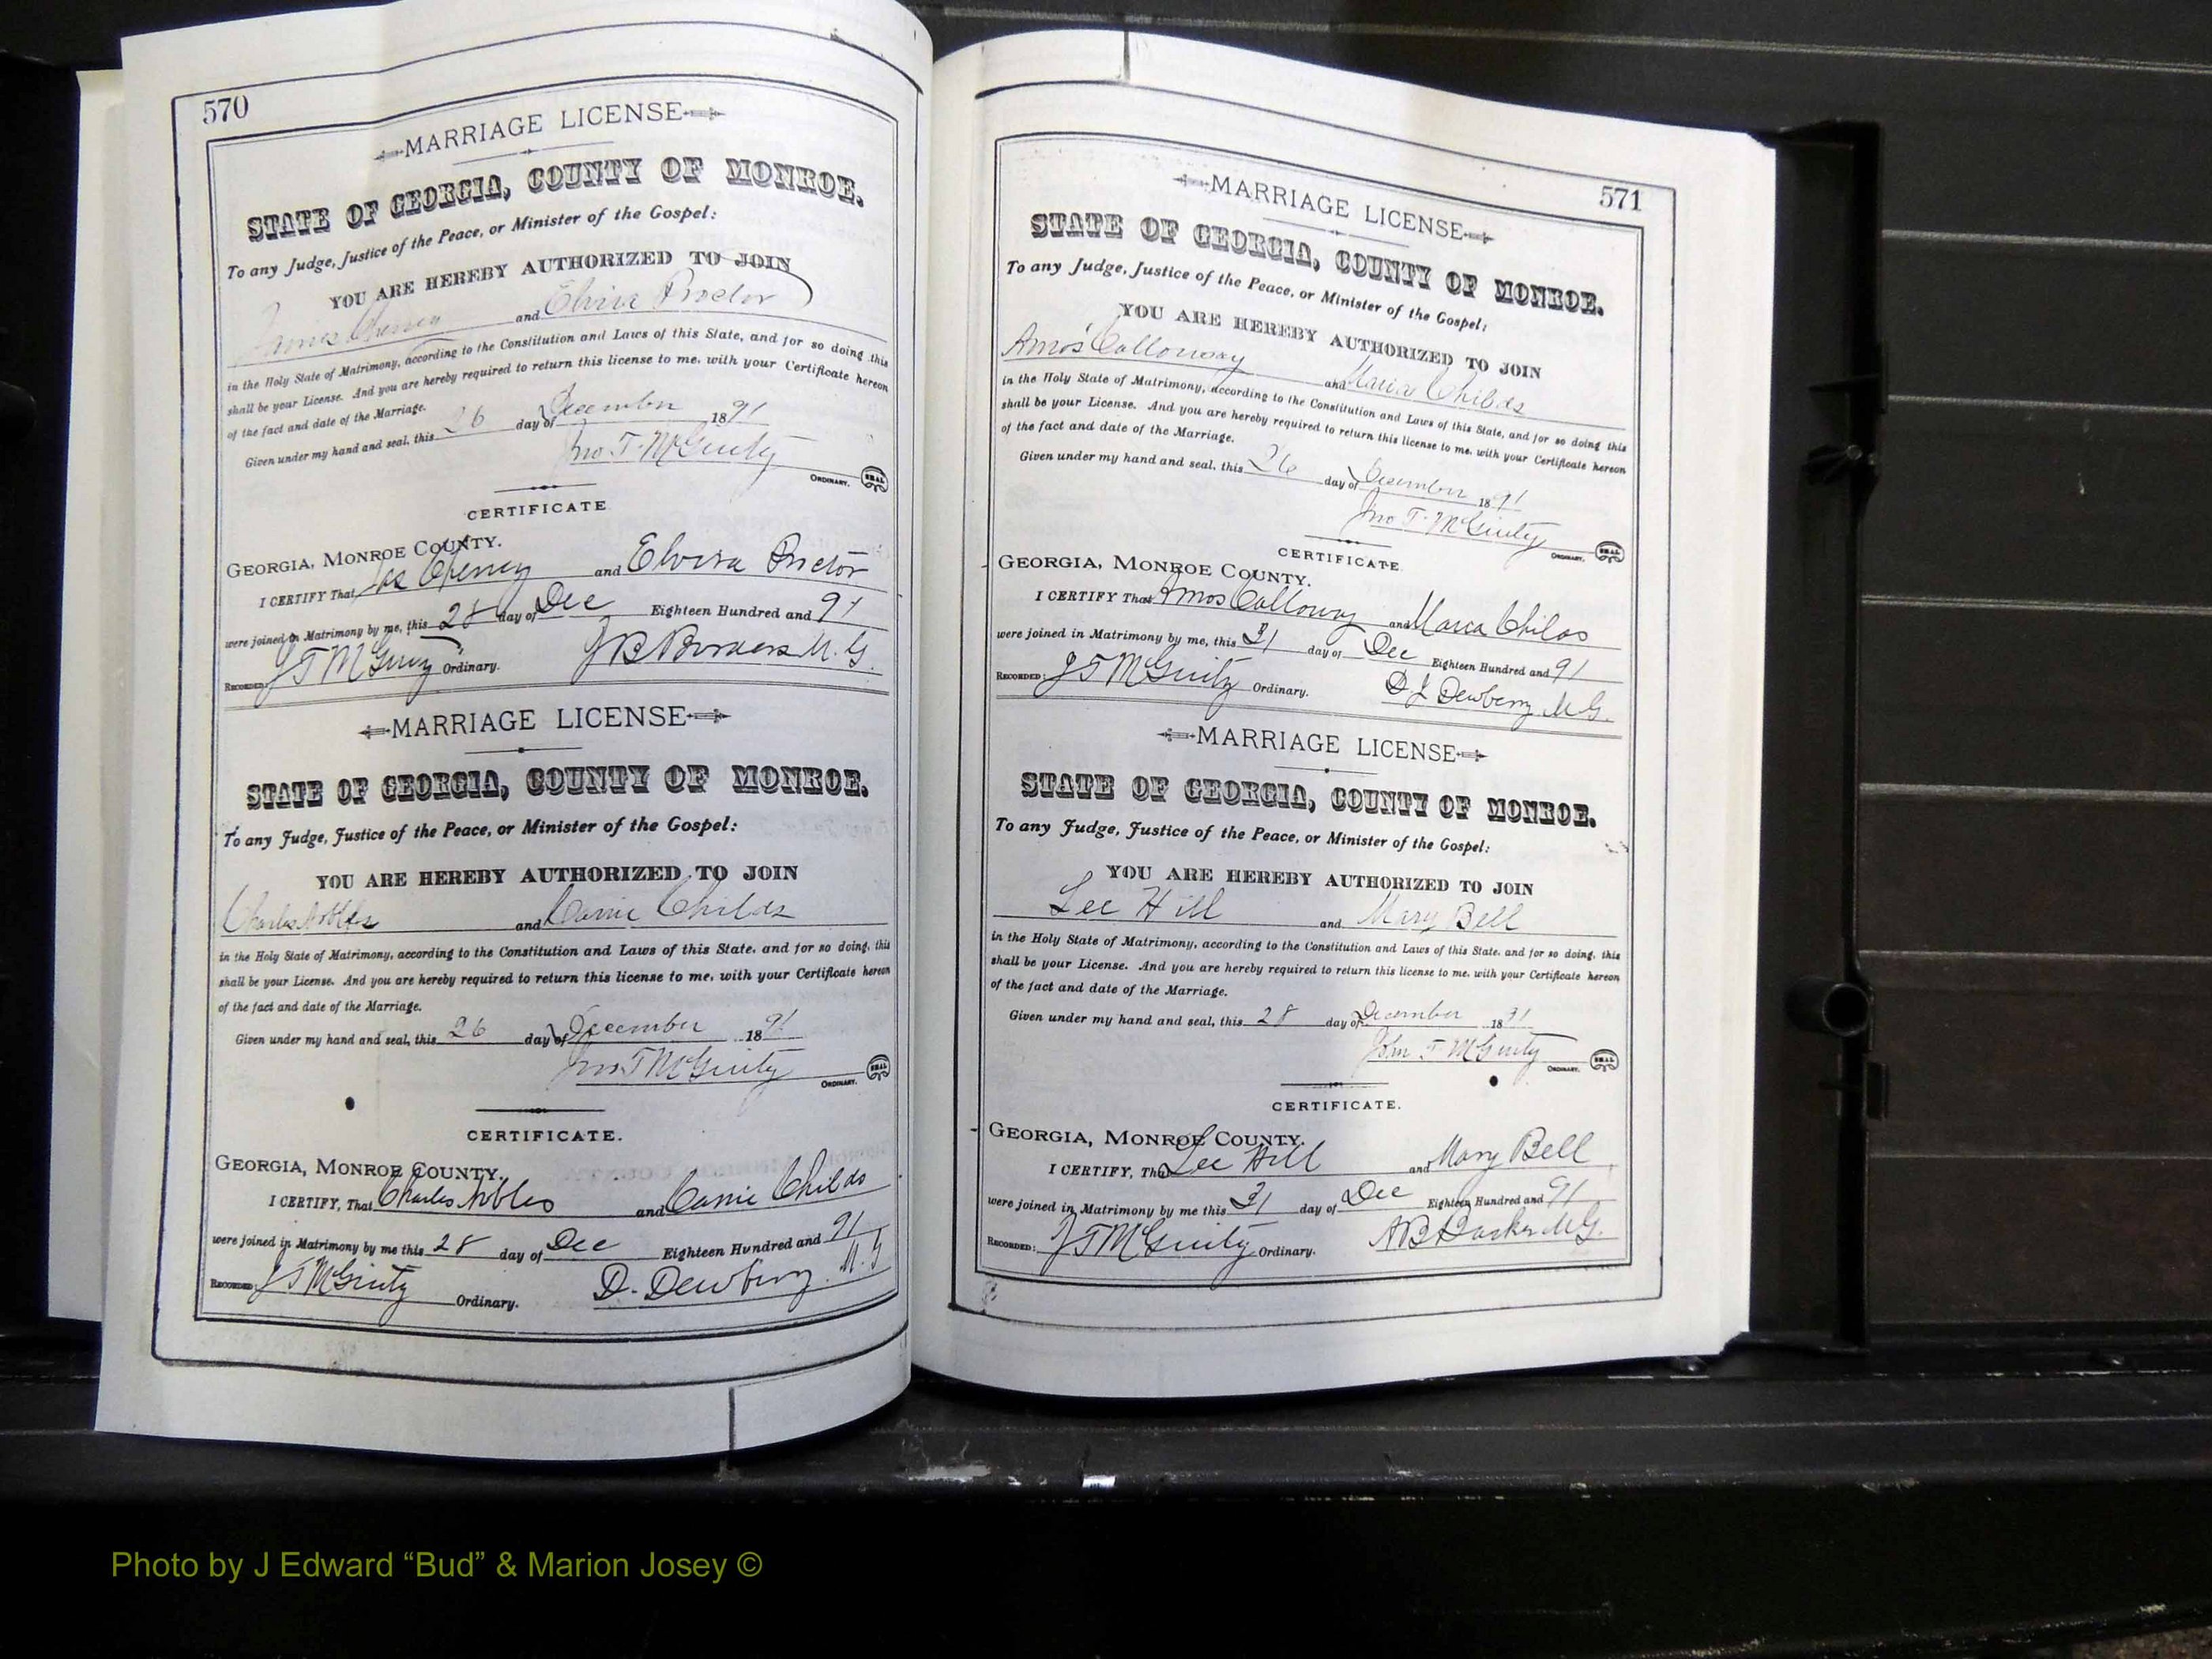 570
MARRIAGE LICENSE
STATE OF GEORGIA, COUNTY OF MONROE.
To any Judge, Justice of the Peace, or Minister of the Gospel:
YOU ARE HEREBY AUTHORIZED TO JOIN
James and Elvira Proctor
in the Holy State of Matrimony, according to the Constitution and Laws of this State, and for so doing this
shall be your License. And you are hereby required to return this license to me, with your Certificate hereon
of the fact and date of the Marriage.
Given under my hand and seal, this 26 day of December 1891
Jno T. McGinty
ORDINARY. SEAL
CERTIFICATE
GEORGIA, MONROE COUNTY.
I CERTIFY That Jas and Elvira Proctor
were joined in Matrimony by me, this 28 day of Dec Eighteen Hundred and 91
RECORDED: J T McGinty Ordinary. J B M. G.
MARRIAGE LICENSE
STATE OF GEORGIA, COUNTY OF MONROE.
To any Judge, Justice of the Peace, or Minister of the Gospel:
YOU ARE HEREBY AUTHORIZED TO JOIN
Charles Nobles and Carrie Childs
in the Holy State of Matrimony, according to the Constitution and Laws of this State, and for so doing, this
shall be your License. And you are hereby required to return this license to me, with your Certificate hereon
of the fact and date of the Marriage.
Given under my hand and seal, this 26 day of December 1891
Jno T McGinty
ORDINARY. SEAL
CERTIFICATE.
GEORGIA, MONROE COUNTY.
I CERTIFY, That Charles Nobles and Carrie Childs
were joined in Matrimony by me this 28 day of Dec Eighteen Hundred and 91
RECORDED: J T McGinty Ordinary. D. Dewberry M. G
571
MARRIAGE LICENSE
STATE OF GEORGIA, COUNTY OF MONROE.
To any Judge, Justice of the Peace, or Minister of the Gospel:
YOU ARE HEREBY AUTHORIZED TO JOIN
Amos Calloway and Maria Childs
in the Holy State of Matrimony, according to the Constitution and Laws of this State, and for so doing this
shall be your License. And you are hereby required to return this license to me, with your Certificate hereon
of the fact and date of the Marriage.
Given under my hand and seal, this 26 day of December 1891
Jno T. McGinty
ORDINARY. SEAL
CERTIFICATE
GEORGIA, MONROE COUNTY.
I CERTIFY That Amos Calloway and Maria Childs
were joined in Matrimony by me, this 31 day of Dec Eighteen Hundred and 91
RECORDED: J T McGinty Ordinary. D. J Dewberry M G.
MARRIAGE LICENSE
STATE OF GEORGIA, COUNTY OF MONROE.
To any Judge, Justice of the Peace, or Minister of the Gospel:
YOU ARE HEREBY AUTHORIZED TO JOIN
Lee Hill and Mary Bell
in the Holy State of Matrimony, according to the Constitution and Laws of this State, and for so doing, this
shall be your License. And you are hereby required to return this license to me, with your Certificate hereon
of the fact and date of the Marriage.
Given under my hand and seal, this 28 day of December 1891
John T McGinty
ORDINARY. SEAL
CERTIFICATE.
GEORGIA, MONROE COUNTY.
I CERTIFY, That Lee Hill and Mary Bell
were joined in Matrimony by me this 31 day of Dec Eighteen Hundred and 91
RECORDED: J T McGinty Ordinary. A B M G.
Photo by J Edward “Bud” & Marion Josey ©